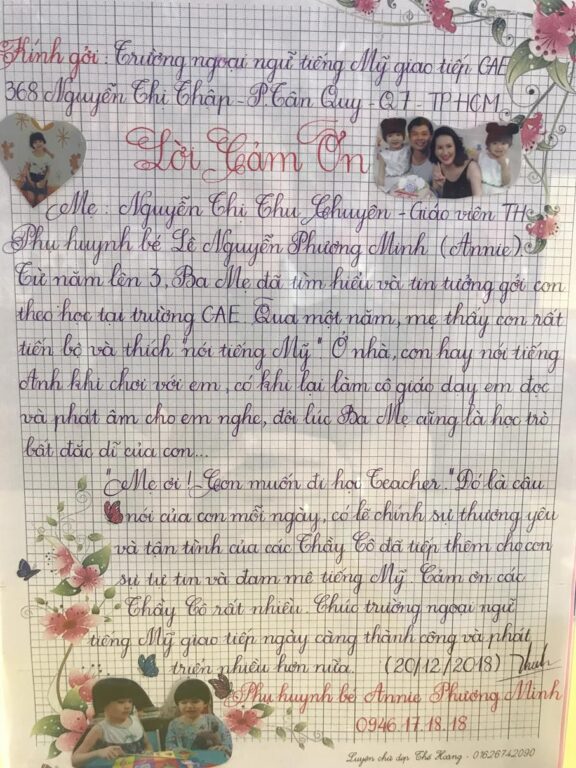 Kính gởi : Trường ngoại ngữ tiếng Mỹ giao tiếp CAE
368 Nguyễn Thị Thập - P.Tân Quy - Q7 - TP.HCM
Lời Cảm Ơn
Mẹ : Nguyễn Thị Thu Chuyên - Giáo viên TH
Phụ huynh bé Lê Nguyễn Phương Minh (Annie).
Từ năm lên 3, Ba Mẹ đã tìm hiểu và tin tưởng gởi con
theo học tại trường CAE. Qua một năm, mẹ thấy con rất
tiến bộ và thích "nói tiếng Mỹ." Ở nhà, con hay nói tiếng
Anh khi chơi với em, có khi lại làm cô giáo dạy em đọc
và phát âm cho em nghe, đôi lúc Ba Mẹ cũng là học trò
bất đắc dĩ của con...
"Mẹ ơi ! Con muốn đi học Teacher." Đó là câu
nói của con mỗi ngày, có lẽ chính sự thương yêu
và tận tình của các Thầy Cô đã tiếp thêm cho con
sự tự tin và đam mê tiếng Mỹ. Cảm ơn các
Thầy Cô rất nhiều. Chúc trường ngoại ngữ
tiếng Mỹ giao tiếp ngày càng thành công và phát
triển nhiều hơn nữa. (20/12/2018)
Phụ huynh bé Annie Phương Minh
0946.17.18.18
Luyện chữ đẹp Thế Hoàng - 01626742090